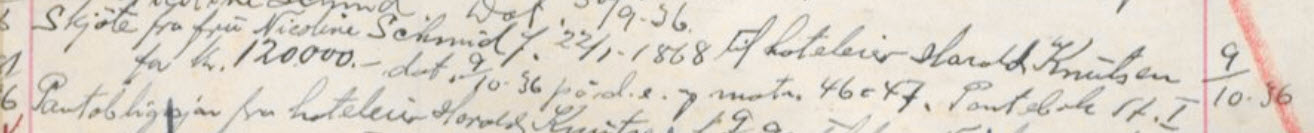 Dat. 30/9-36.
Skjöte fra fru Nicoline Schmidt f. 22/1-1868 til hoteleier Harald Knutsen 9/10-36
for kr. 120000.- dat. 9/10-36 på d.e. av matr. 46 & 47. Pantebok H.I
Pantobligasjon fra hoteleier Harald Knutsen f. 9